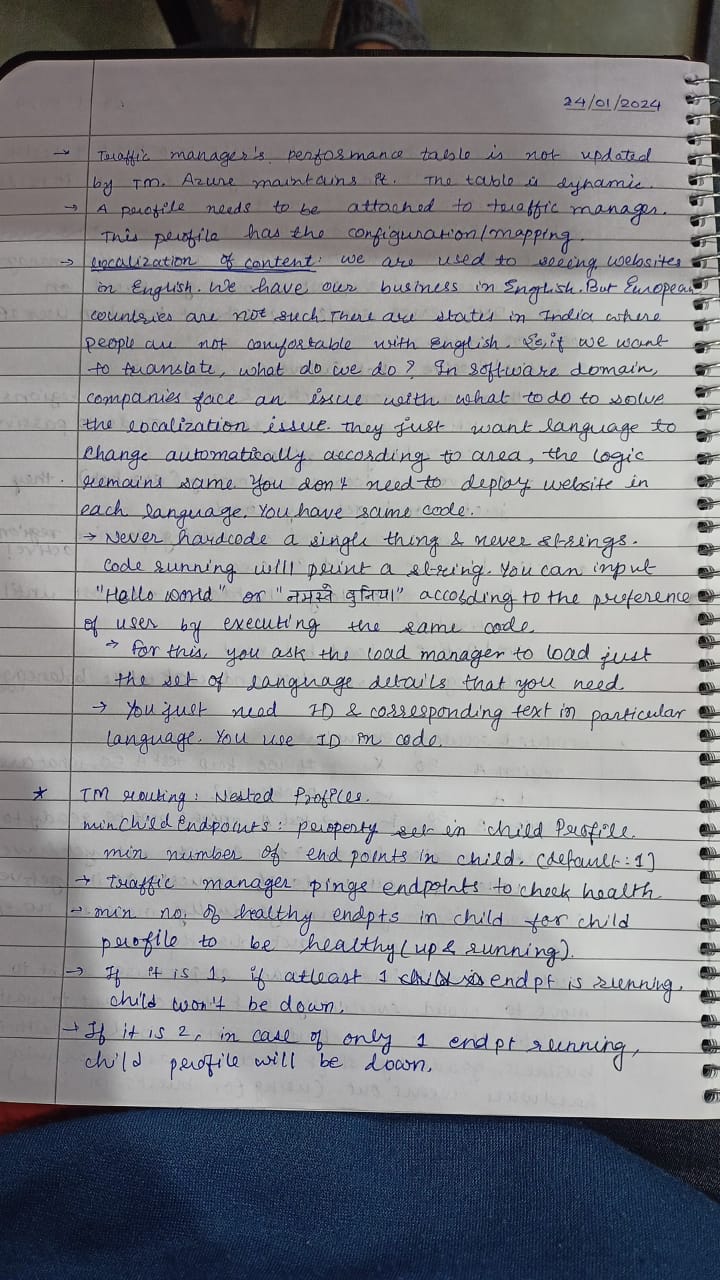 24/01/2024
→ Traffic manager's performance table is not updated
by TM. Azure maintains it. The table is dynamic.
→ A profile needs to be attached to traffic manager.
This profile has the configuration/mapping.
→ Localization of content: we are used to seeing websites
in English. We have our business in English. But European
countries are not such. There are states in India where
people are not comfortable with English. So, if we want
to translate, what do we do? In software domain,
companies face an issue with what to do to solve
the localization issue. They just want language to
change automatically according to area, the logic
remains same. You don't need to deploy website in
each language. You have same code.
→ Never hardcode a single thing & never strings.
Code running will print a string. You can input
"Hello world" or "नमस्ते दुनिया" according to the preference
of user by executing the same code.
→ For this, you ask the load manager to load just
the set of language details that you need.
→ You just need ID & corresponding text in particular
language. You use ID in code.
* TM routing: Nested Profiles.
minChildEndpoints: property set in child Profile.
min number of end points in child. (default: 1)
→ Traffic manager pings endpoints to check health.
→ min no. of healthy endpts in child for child
profile to be healthy (up & running).
→ If it is 1, if atleast 1 endpt is running,
child won't be down.
→ If it is 2, in case of only 1 endpt running,
child profile will be down.